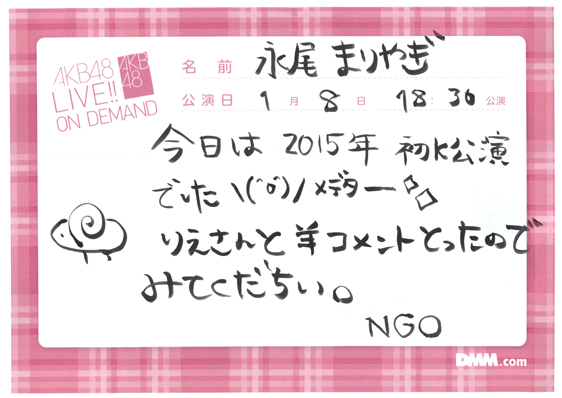 AKB48
LIVE!!
ON DEMAND
AKB
48
名前 永尾 まりやぎ
公演日 1月 8日 18:30 公演
今日は 2015年 初K公演
でした \(^o^)/ メデター
りえさんと羊コメントとったので
みてくだちい。
NGO
DMM.com